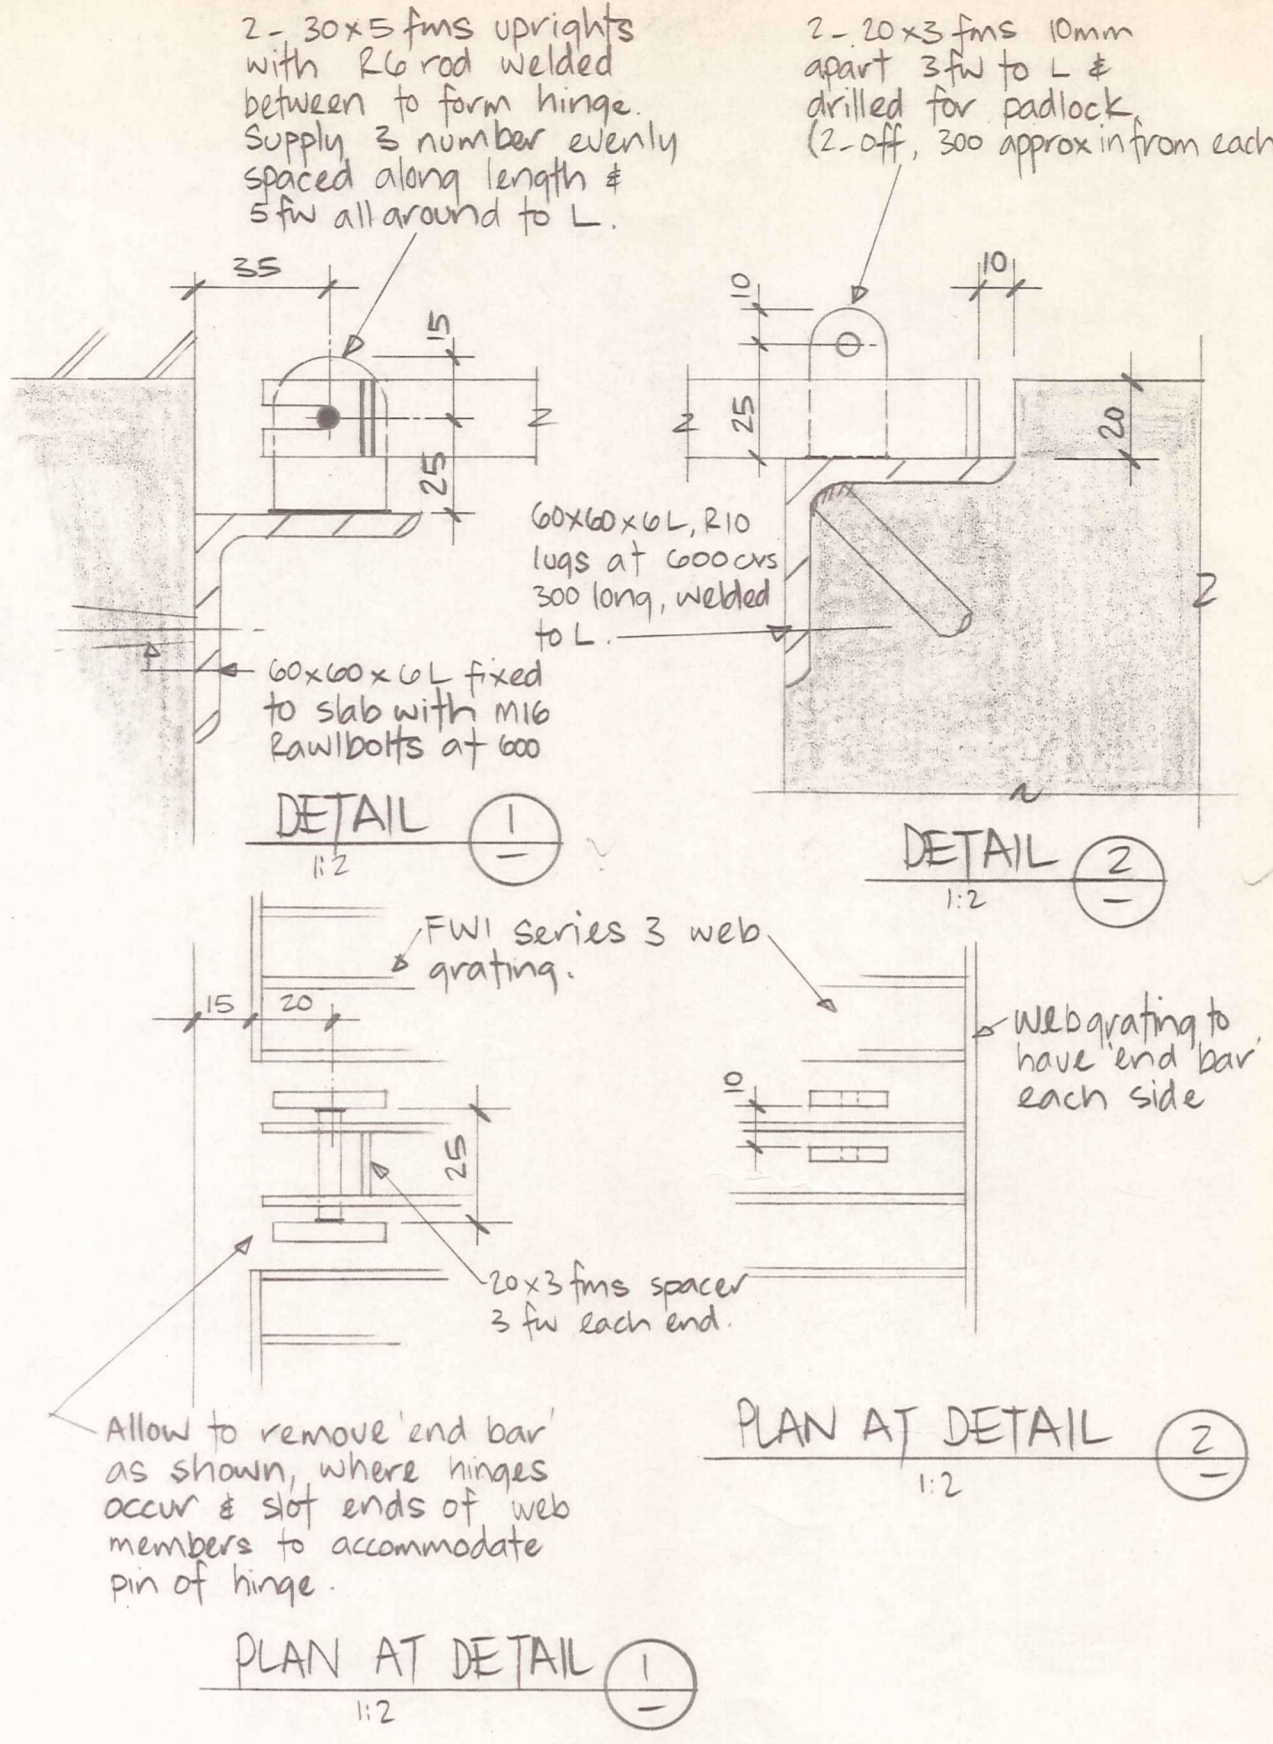 2- 30x5 fms uprights
with R6 rod welded
between to form hinge.
Supply 3 number evenly
spaced along length &
5fw all around to L.
2- 20x3 fms 10mm
apart 3fw to L &
drilled for padlock
(2-off, 300 approx in from each
35
15
25
10
25
10
20
60x60x6L, R10
lugs at 600 cvs
300 long, welded
to L.
60x60x6L fixed
to slab with M16
Rawlbolts at 600
DETAIL 1
1:2
DETAIL 2
1:2
FW1 series 3 web
grating.
15
20
25
10
Web grating to
have 'end bar'
each side
20x3 fms spacer
3 fw each end.
Allow to remove 'end bar'
as shown, where hinges
occur & slot ends of web
members to accommodate
pin of hinge.
PLAN AT DETAIL 1
1:2
PLAN AT DETAIL 2
1:2